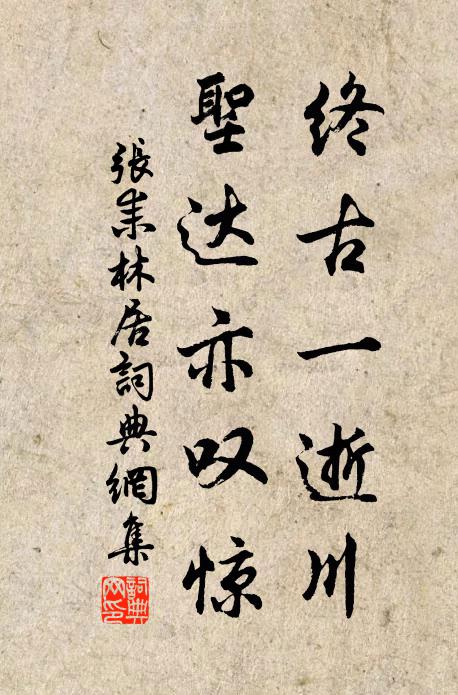 终古一逝川
聖达亦叹惊
張耒林居詞典網集
詞典網印